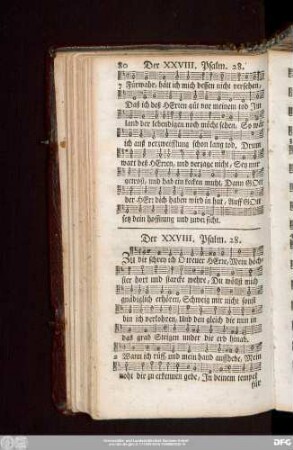 80 Der XXVIII. Psalm. 28.
7 Fürwahr, hätt ich mich dessen nicht versehen,
Das ich deß HErren güt vor meinem tod Im
land der lebendigen noch möcht sehen. So wär
ich auß verzweifflung schon lang tod. Drum
wart deß HErren, und verzage nicht, Sey nur
getrost, und hab ein kecken muht. Dann GOtt
der HErr dich haben wird in hut, Auff GOtt
setz dein hoffnung und zuversicht.
Der XXVIII. Psalm. 28.
Zu dir schrey ich O treuer HErre, Mein höch-
ster hort und starcke wehre, Du wöllst mich
gnädiglich erhören, Schweig mir nicht sonst
bin ich verlohren, Und den gleich die nun in
das grab Steigen under die erd hinab.
2 Wann ich rüff und mein hand auffhebe, Mein
noht dir zu erkennen gebe, In deinem tempel
für